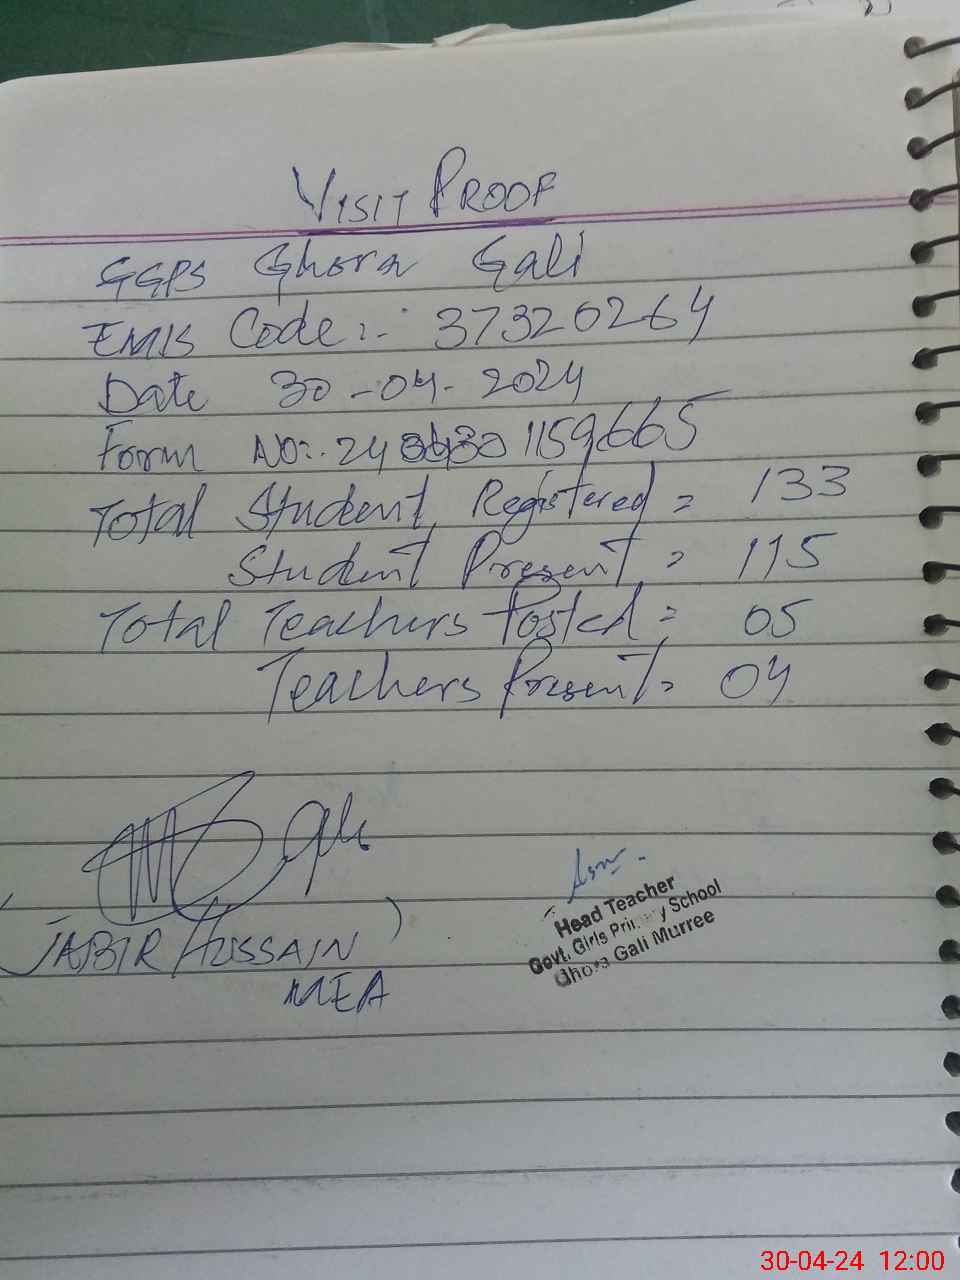 VISIT PROOF
GGPS Ghora Gali
EMIS Code:- 37320264
Date 30-04-2024
Form NO:. 2404301159665
Total Student Registered = 133
Student Present = 115
Total Teachers Posted = 05
Teachers Present = 04
(JABIR HUSSAIN)
MEA
Head Teacher
Govt. Girls Primary School
Ghora Gali Murree
30-04-24 12:00